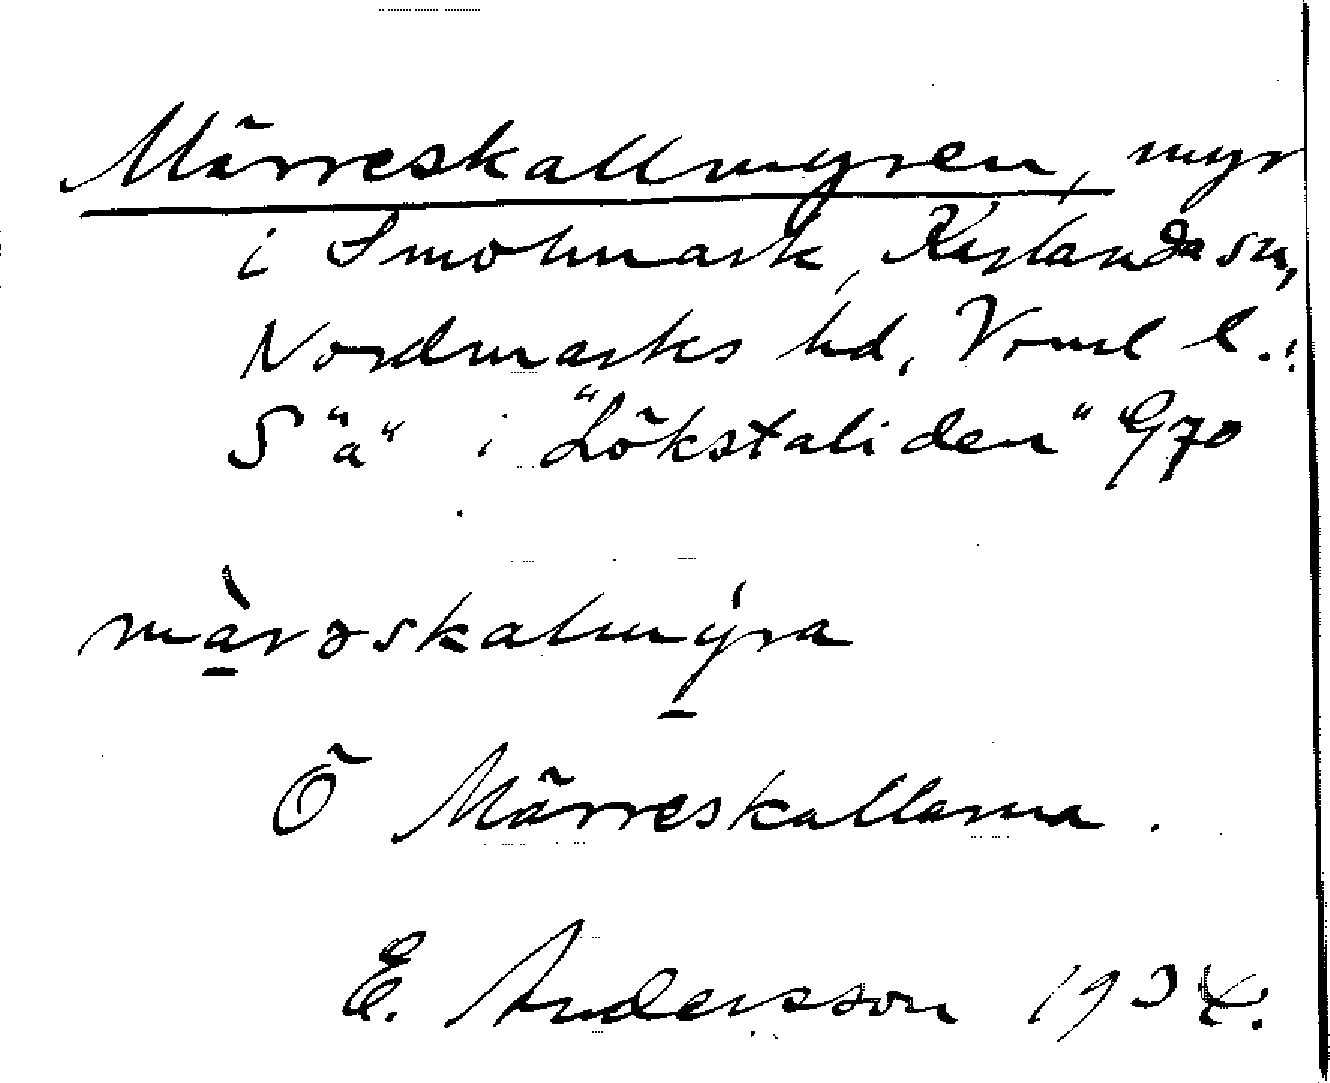 Märreskallmyren, myr
i Smolmark, Karlanda sn,
Nordmarks hd, Vrml l.:
S "a" i "Lökstaliden" G70
märəskalmýra
Ö Märreskallarna.
E. Andersson 1934.